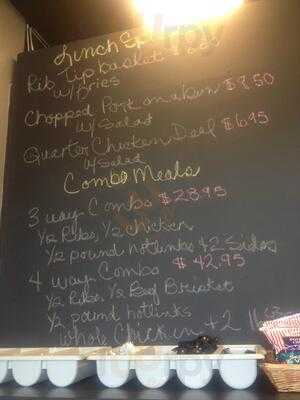 Lunch
Rib Tip basket $
w/ Fries
Chopped Pork on a bun $8.50
w/ Salad
Quarter Chicken Deal $6.95
w/ Salad
Combo Meals
3 way Combo $28.95
1/2 Ribs, 1/2 chicken
1/2 pound hotlinks & 2 Sides
4 way Combo $42.95
1/2 Ribs 1/2 Beef Brisket
1/2 pound hotlinks
whole Chicken + 2